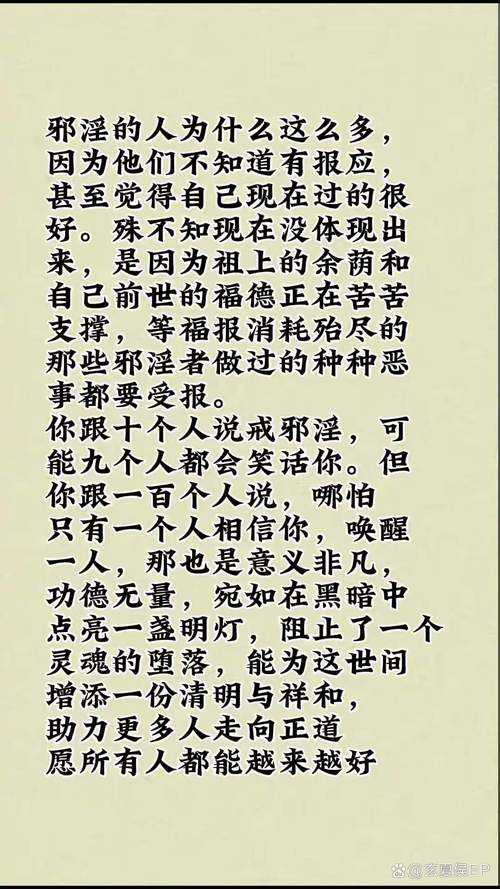 邪淫的人为什么这么多，
因为他们不知道有报应，
甚至觉得自己现在过的很
好。殊不知现在没体现出
来，是因为祖上的余荫和
自己前世的福德正在苦苦
支撑，等福报消耗殆尽的
那些邪淫者做过的种种恶
事都要受报。
你跟十个人说戒邪淫，可
能九个人都会笑话你。但
你跟一百个人说，哪怕
只有一个人相信你，唤醒
一人，那也是意义非凡，
功德无量，宛如在黑暗中
点亮一盏明灯，阻止了一个
灵魂的堕落，能为这世间
增添一份清明与祥和，
助力更多人走向正道
愿所有人都能越来越好